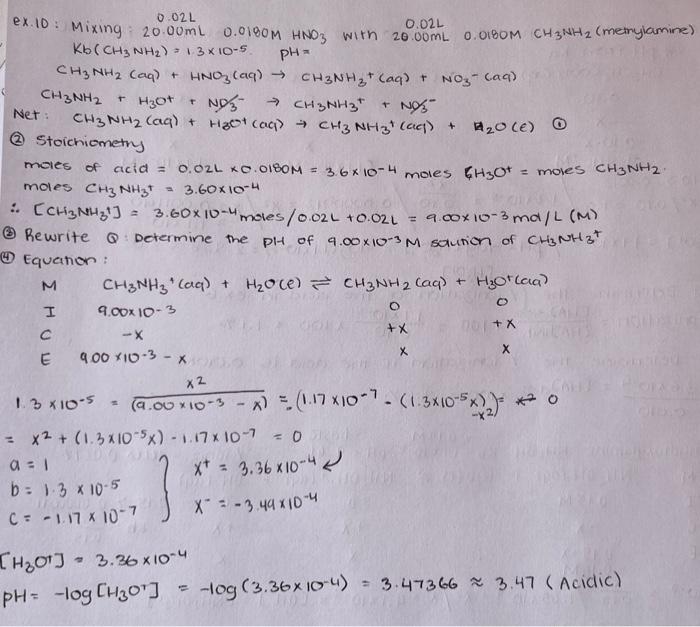 0.02L 0.02L
ex.10: Mixing: 20.00mL 0.0180M HNO3 with 20.00mL 0.0180M CH3NH2 (methylamine)
Kb(CH3NH2) = 1.3×10-5. pH=
CH3NH2 (aq) + HNO3(aq) → CH3NH3+ (aq) + NO3- (aq)
CH3NH2 + H3O+ + NO3- → CH3NH3+ + NO3-
Net: CH3NH2 (aq) + H3O+ (aq) → CH3NH3+ (aq) + H2O(l) ①
② Stoichiometry
moles of acid = 0.02L × 0.0180M = 3.6×10-4 moles H3O+ = moles CH3NH2.
moles CH3NH3+ = 3.60×10-4
∴ [CH3NH3+] = 3.60×10-4 moles/0.02L + 0.02L = 9.00×10-3 mol/L (M)
③ Rewrite Q: Determine the pH of 9.00×10-3 M solution of CH3NH3+
④ Equation:
M CH3NH3+ (aq) + H2O(l) ⇌ CH3NH2 (aq) + H3O+ (aq)
I 9.00×10-3 0 0
C -x +x +x
E 9.00×10-3 - x x x
1.3×10-5 = x2/(9.00×10-3 - x) = (1.17×10-7 - (1.3×10-5x)) = 0
-x2
= x2 + (1.3×10-5x) - 1.17×10-7 = 0
a = 1
b = 1.3 × 10-5
c = -1.17 × 10-7
x+ = 3.36×10-4
x- = -3.49×10-4
[H3O+] = 3.36×10-4
pH = -log[H3O+] = -log(3.36×10-4) = 3.47366 ≈ 3.47 (Acidic)